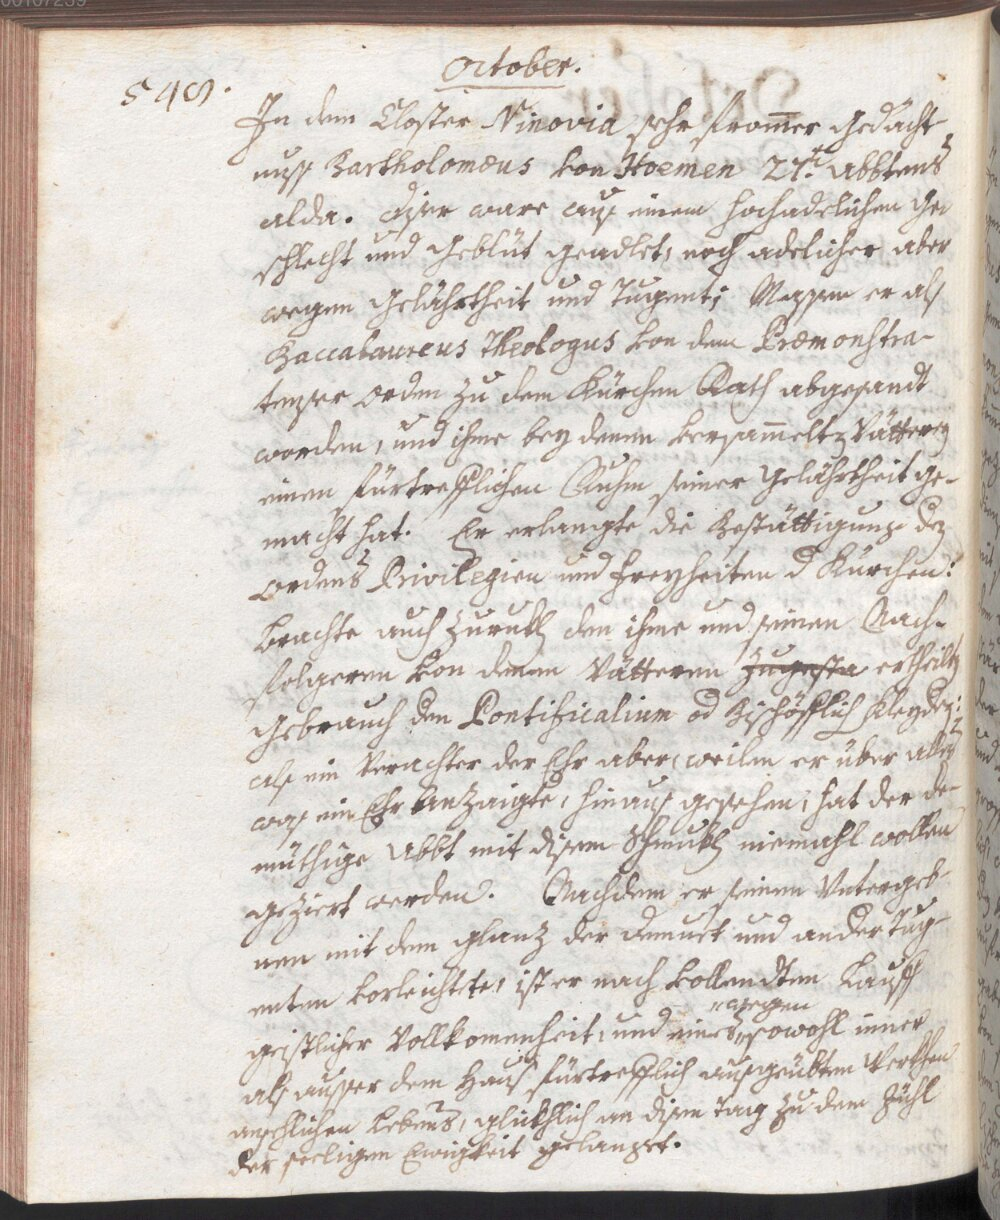 00107259
October.
548.
In dem Closter Ninovia sehr frommer gedächt-
nuß Bartholomæus von Hoemen 27t. Abbtens
alda. Diser ware auß einem hochadelichen Ge
schlecht und Geblüt geadlet, noch adelicher aber
wegen Gelährtheit und Tugent; Massen er als
Baccalaureus Theologus von dem Præmonstra-
tenser Orden zu dem Kürchen Rath abgesandt
worden, und ihme bey denen versammeltz Vätteren
einen fürtrefflichen Ruhm seiner Gelährtheit ge-
macht hat. Er erlangte die Bestättigung deß
Ordens Privilegien und Freyheiten d Kürchen:
brachte auch zurukh den ihme und seinen Nach-
folgeren von denen Vätteren ertheiltz
Gebrauch den Pontificalium od Bischöfflich Kleydern:
als ein Verachter der Ehr aber, weilen er über alles
was ein Ehr anzaigte, hinauß gesehen, hat der de-
müthige Abbt mit disem Schmukh niemahl wollen
geziert werden. Nachdem er seinen Untergeb-
nen mit dem glantz der Demuet und ander Tug-
enten vorleichtete, ist er nach vollendten Lauff
geistlicher Vollkomenheit, und eines wegen sowohl inner
als ausser dem Hauß fürtrefflich außgeübten Werkhen
anehlichen Lebens, glükhlich an disem Tag zu dem Zühl
der seeligen Ewigkeit gelanget.